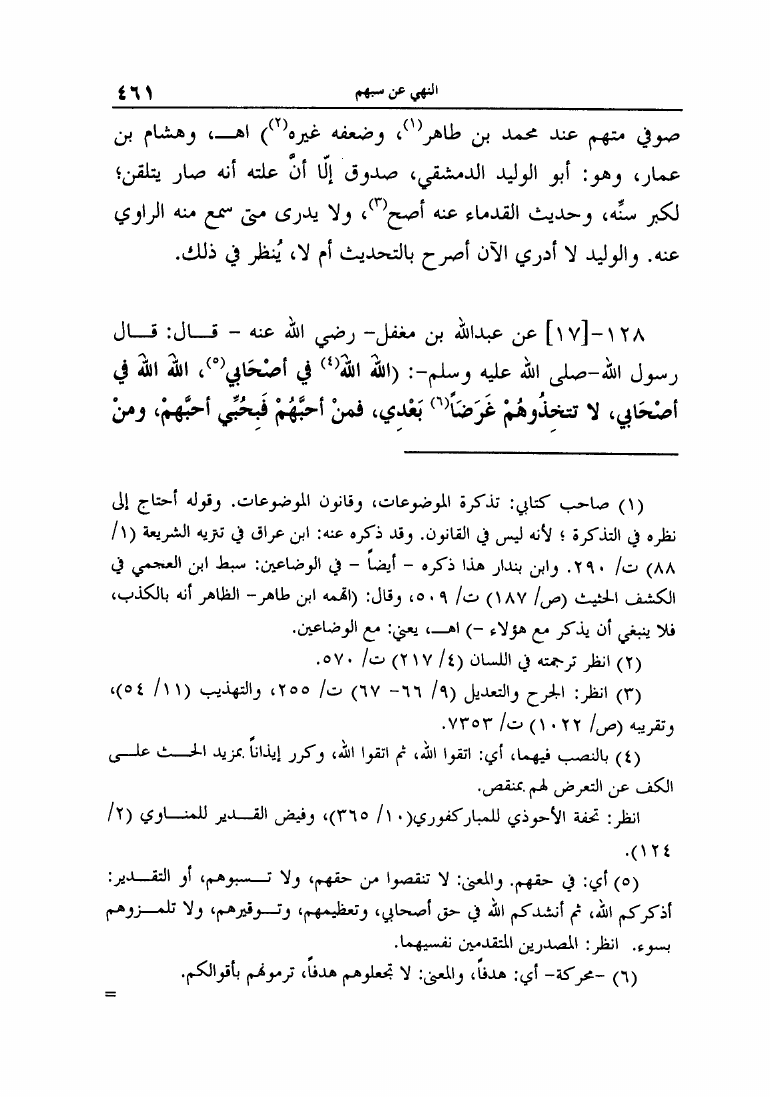 النهي عن سبهم ٤٦١
صوفي متهم عند محمد بن طاهر(١)، وضعفه غيره(٢)) اهـ، وهشام بن
عمار، وهو: أبو الوليد الدمشقي، صدوق إلّا أنَّ علته أنه صار يتلقن؛
لكبر سنِّه، وحديث القدماء عنه أصح(٣)، ولا يدرى متى سمع منه الراوي
عنه. والوليد لا أدري الآن أصرح بالتحديث أم لا، يُنظر في ذلك.
١٢٨-[١٧] عن عبدالله بن مغفل- رضي الله عنه - قال: قال
رسول الله-صلى الله عليه وسلم-: (اللهَ اللهَ(٤) في أصْحَابي(٥)، اللهَ اللهَ في
أصْحَابي، لا تتخِذُوهُمْ غَرَضَاً(٦) بَعْدِي، فمنْ أحبَّهُمْ فَبِحُبِّي أحبَّهمْ، ومنْ
(١) صاحب كتابي: تذكرة الموضوعات، وقانون الموضوعات. وقوله أحتاج إلى
نظره في التذكرة ؛ لأنه ليس في القانون. وقد ذكره عنه: ابن عراق في تنزيه الشريعة (١/
٨٨) ت/ ٢٩٠. وابن بندار هذا ذكره - أيضاً - في الوضاعين: سبط ابن العجمي في
الكشف الحثيث (ص/ ١٨٧) ت/ ٥٠٩، وقال: (اتهمه ابن طاهر- الظاهر أنه بالكذب،
فلا ينبغي أن يذكر مع هؤلاء -) اهـ، يعني: مع الوضاعين.
(٢) انظر ترجمته في اللسان (٤/ ٢١٧) ت/ ٥٧٠.
(٣) انظر: الجرح والتعديل (٩/ ٦٦- ٦٧) ت/ ٢٥٥، والتهذيب (١١/ ٥٤)،
وتقريبه (ص/ ١٠٢٢) ت/ ٧٣٥٣.
(٤) بالنصب فيهما، أي: اتقوا الله، ثم اتقوا الله، وكرر إيذاناً بمزيد الحث على
الكف عن التعرض لهم بمنقص.
انظر: تحفة الأحوذي للمباركفوري(١٠/ ٣٦٥)، وفيض القدير للمناوي (٢/
١٢٤).
(٥) أي: في حقهم. والمعنى: لا تنقصوا من حقهم، ولا تسبوهم، أو التقدير:
أذكركم الله، ثم أنشدكم الله في حق أصحابي، وتعظيمهم، وتوقيرهم، ولا تلمزوهم
بسوء. انظر: المصدرين المتقدمين نفسيهما.
(٦) -محركة- أي: هدفاً، والمعنى: لا تجعلوهم هدفاً، ترمونهم بأقوالكم.
=